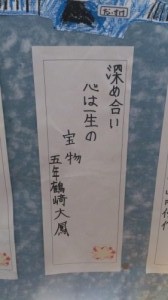 深め合い
心は一生の
宝物
五年鶴崎大鳳